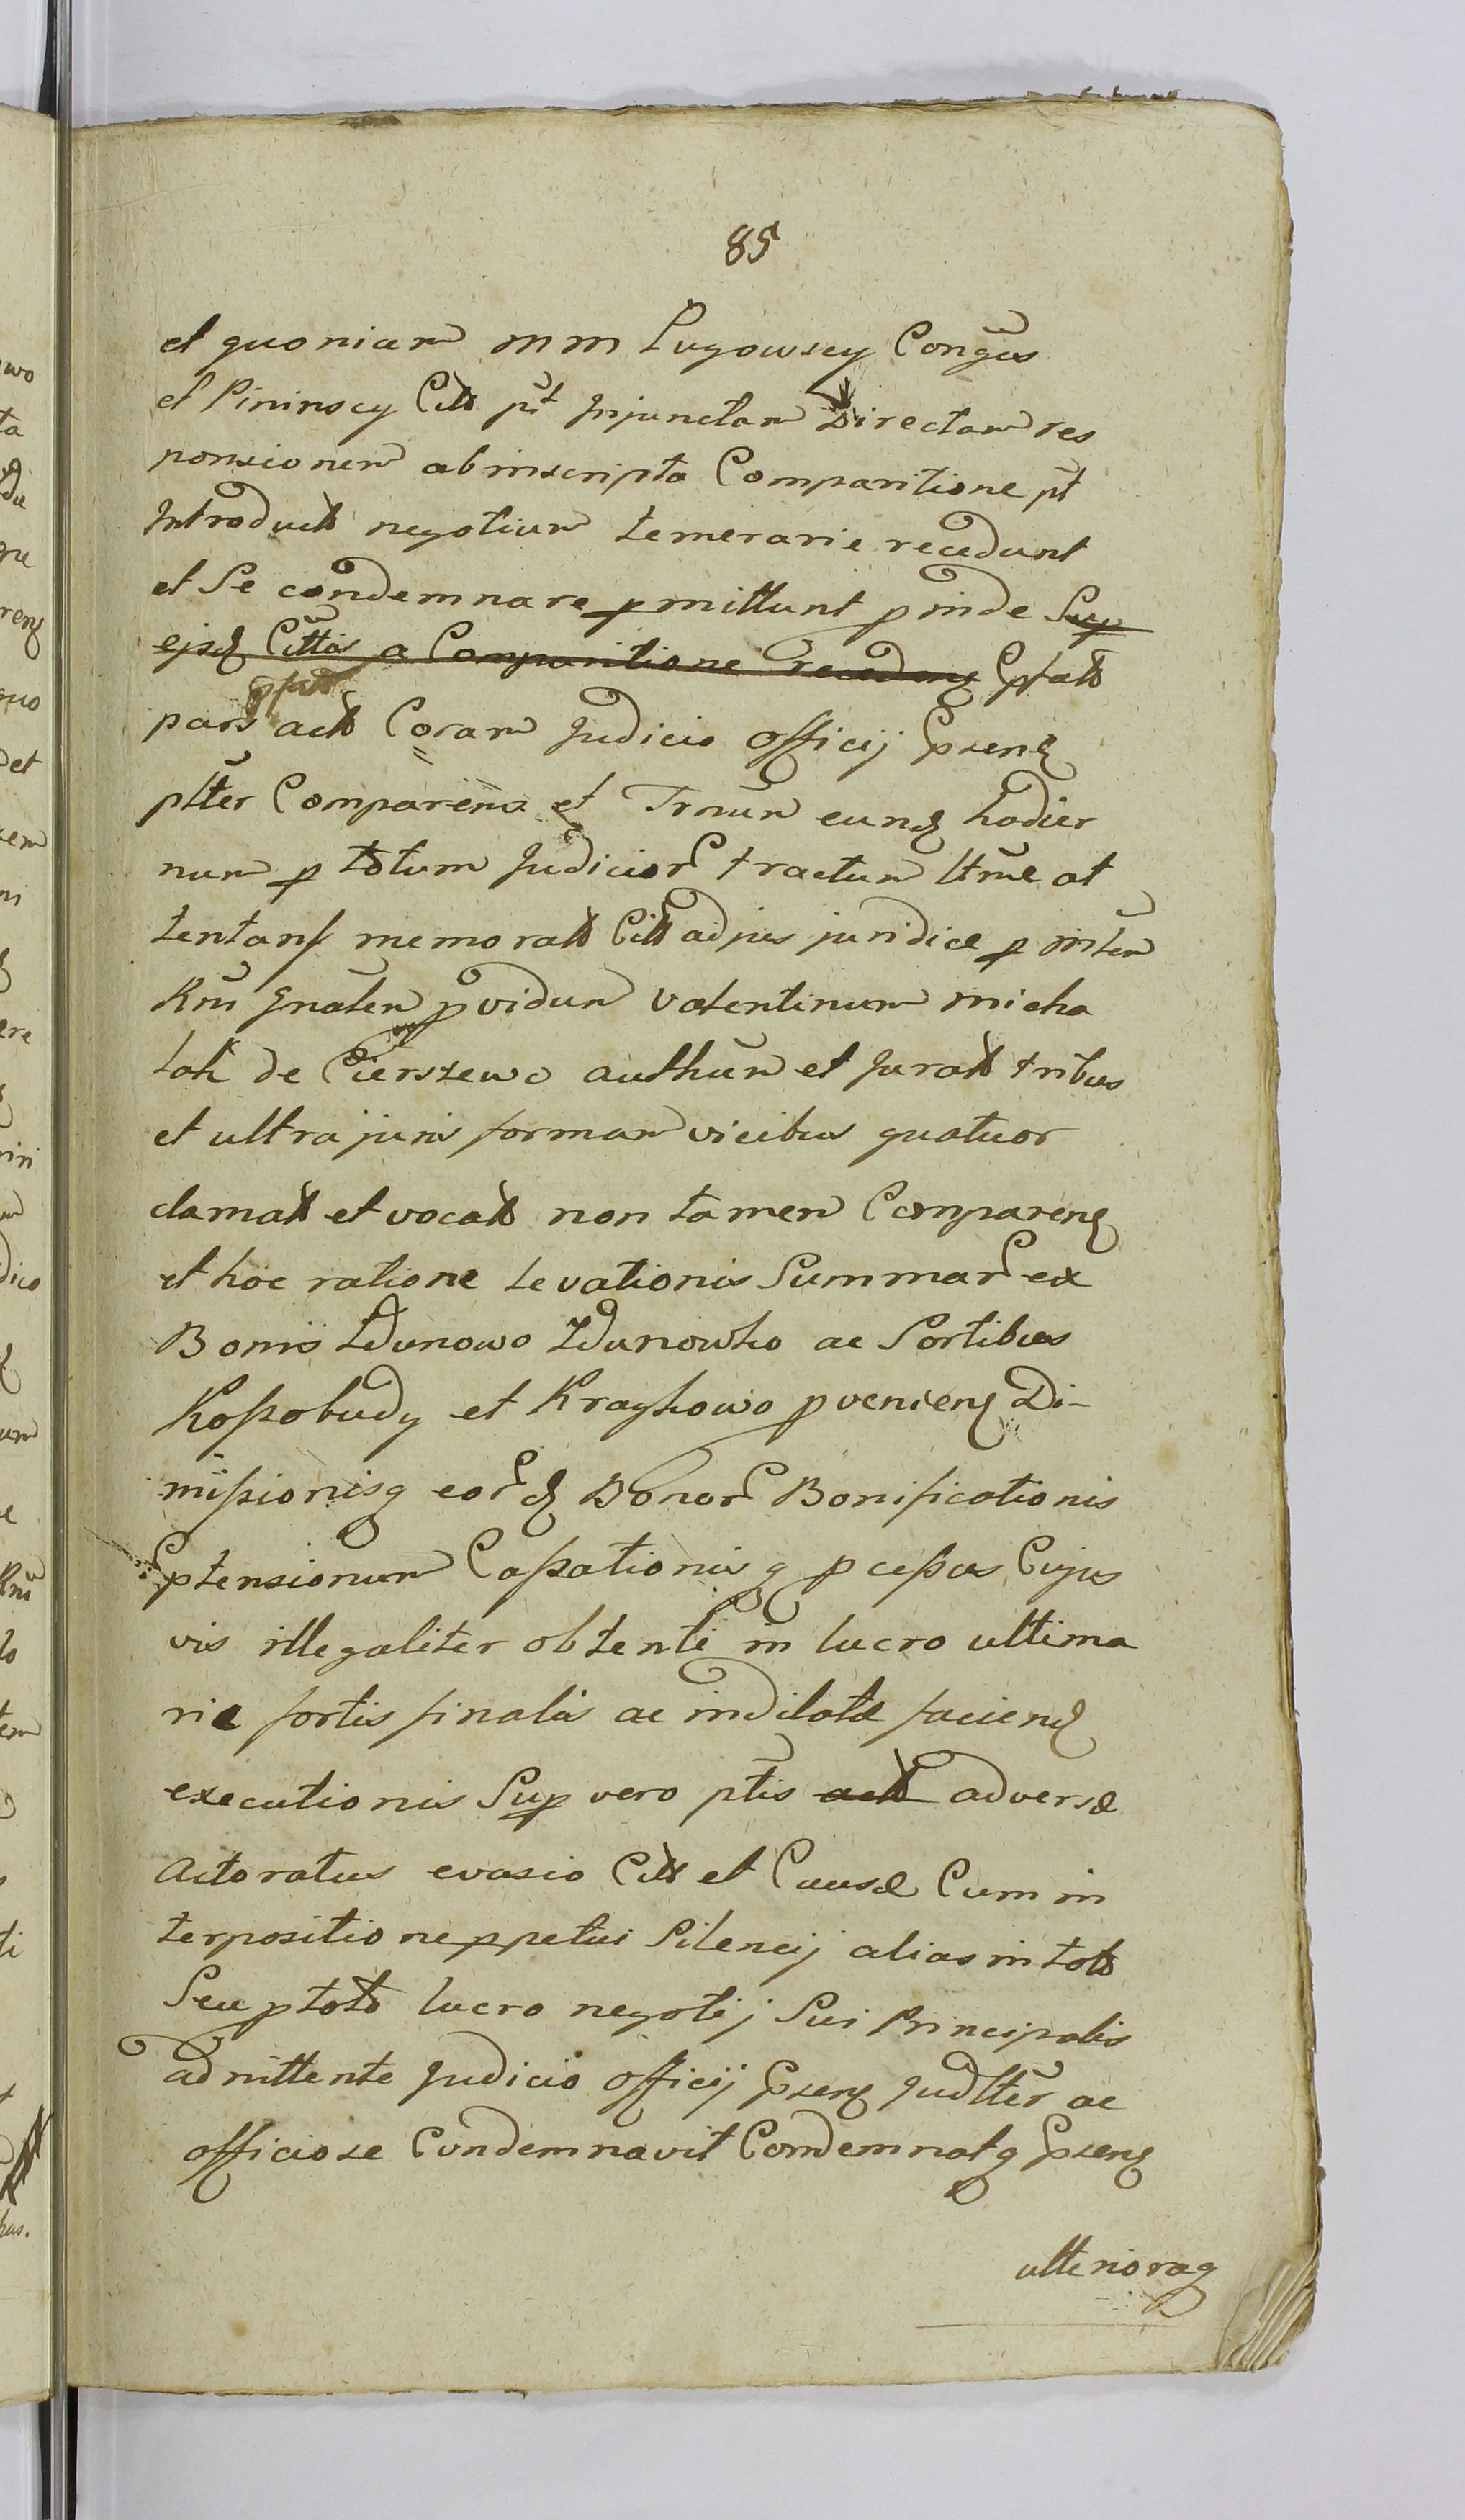 85
et quoniam MM Ługowscy Conges
et Pininscy Citti pt Injunctam Directam res
ponsionem ab inscripta Comparitione pt
Introducti negotium temerarie recedunt
et Se condemnare pmittunt pinde Sup
ejsd Cittis a Comparitione recedenq Pfati
pfati
pars acti Coram Judicio officij Psenq
plter Comparens et Trnum eund hodier
num p totum Judicior tractum ltme at
tentans memorati Citti ad jus juridice p Mltem
Rni Gnalem pvidum Valentinum Micha
lak de Cierszewo authum et Jurati tribus
et ultra juris formam vicibus quatuor
clamati et vocati non tamen Comparenq
et hoc ratione levationis Summar ex
Bonis Zdunowo Zdunowko ac Sortibus
Kossobudy et Kraykowo pvenienq Di-
missionisq eord Bonor Bonificationis
Ptensionum Cassationisq pcessus Cujus
vis illegaliter obtenti in lucro ultima
rie fortis finalis ac indilatæ faciend
executionis Sup vero ptis acti adversæ
Actoratus evasio Citti et Causæ Cum in
terpositione ppetui Silencij alias in toto
Seu p toto lucro negotij Sui Principalis
admittente Judicio officij Psenq Judlter ac
officiose Condemnavit Condemnatq Psenq
ulterioraq